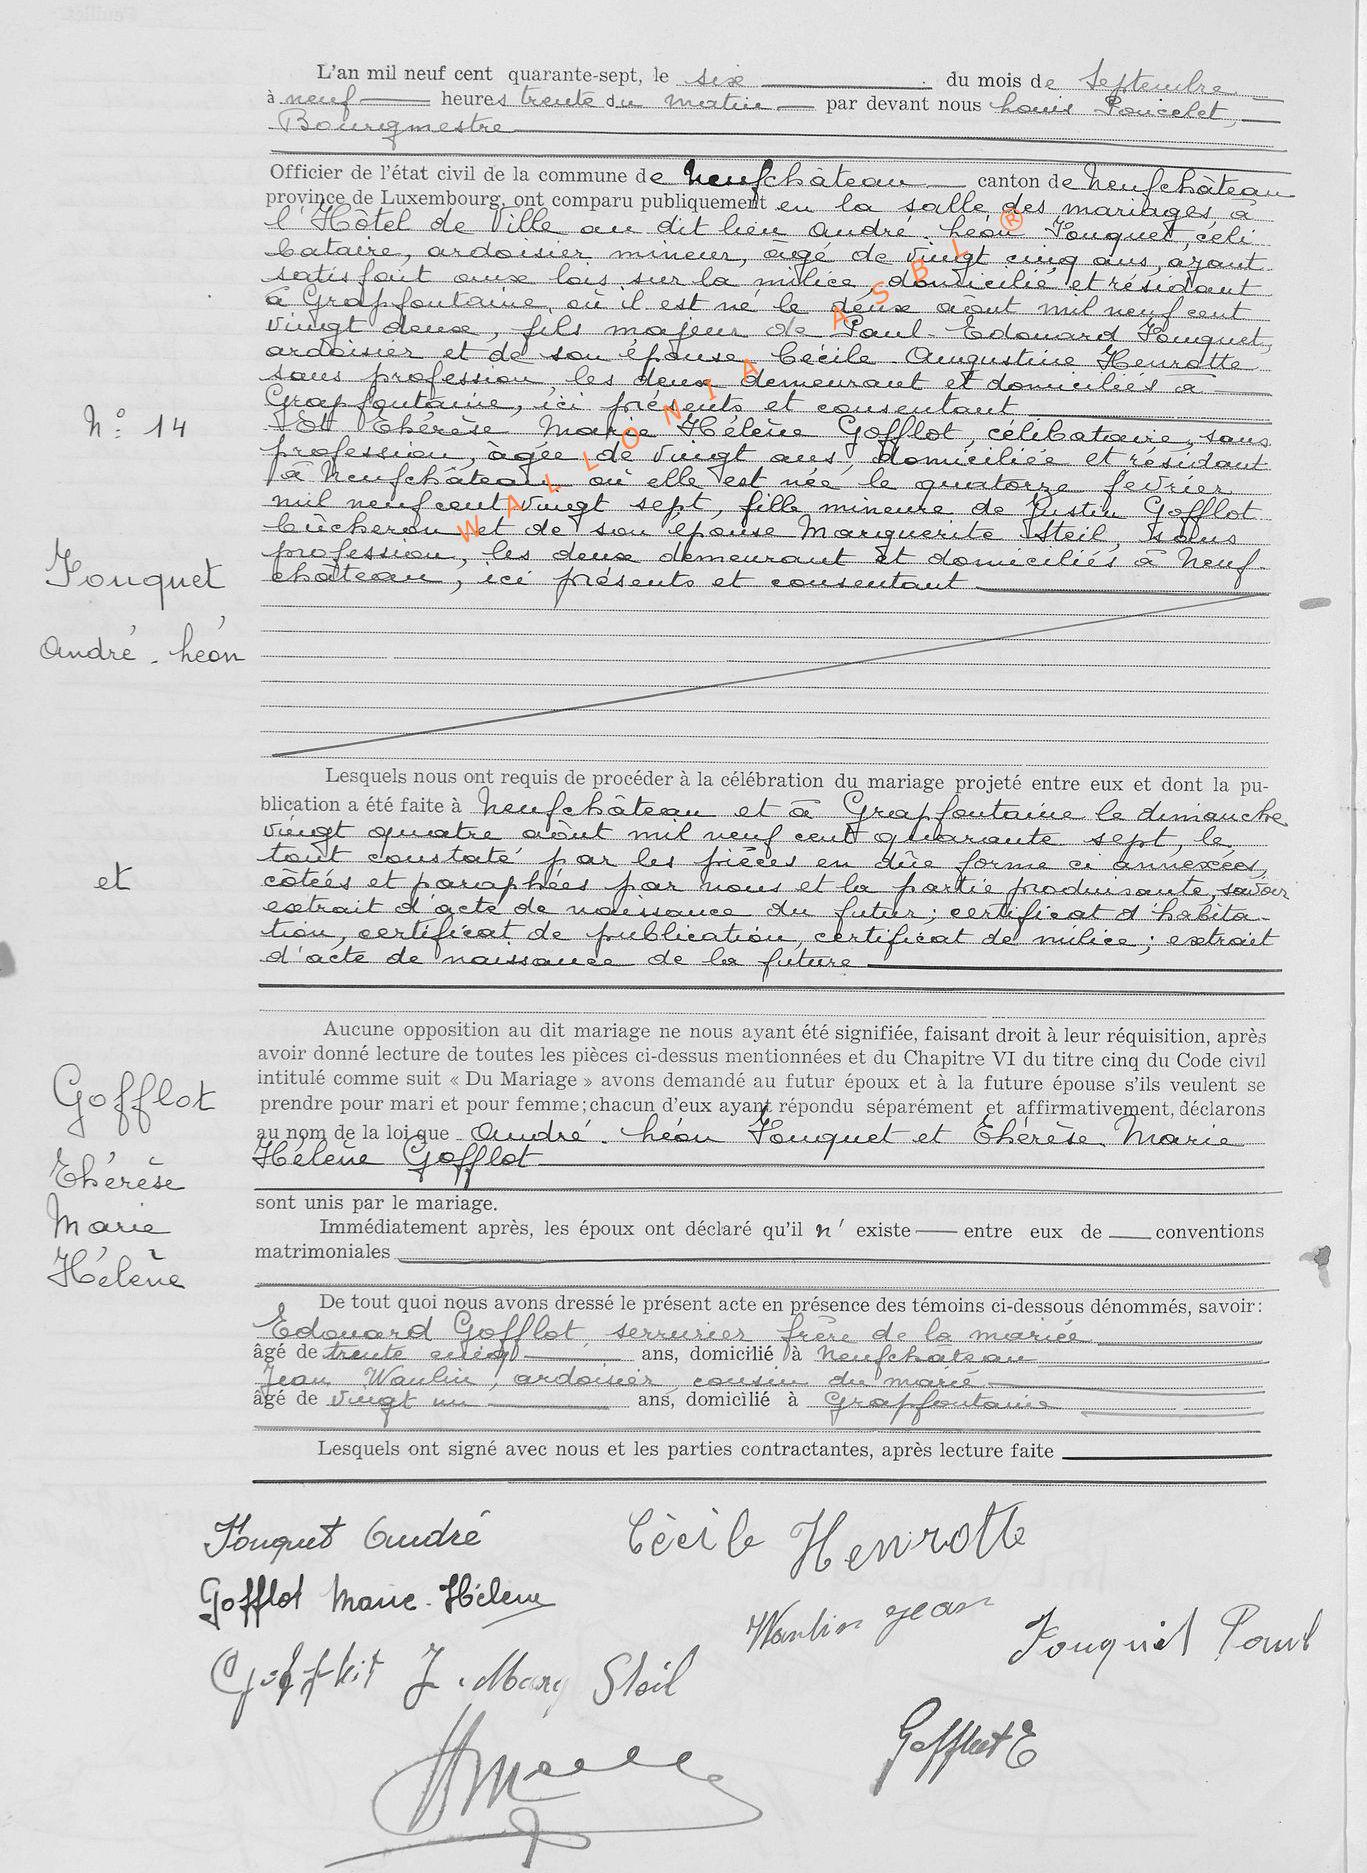 L'an mil neuf cent quarante-sept, le six du mois de Septembre
à neuf heures trente du matin par devant nous Louis Poncelet,
Bourgmestre
Officier de l'état civil de la commune de Neufchâteau canton de Neufchâteau
province de Luxembourg, ont comparu publiquement en la salle des mariages à
l'Hôtel de Ville au dit lieu André-Léon Fouquet, céli
bataire, ardoisier mineur, âgé de vingt cinq ans, ayant
satisfait aux lois sur la milice, domicilié et résidant
à Grapfontaine, où il est né le deux août mil neuf cent
vingt deux, fils majeur de Paul-Edouard Fouquet,
ardoisier et de son épouse Cécile-Augustine Henrotte
sans profession, les deux demeurant et domiciliés à
Grapfontaine, ici présents et consentant
Et Thérèse Marie Hélène Gofflot, célibataire, sans
profession, âgée de vingt ans, domiciliée et résidant
à Neufchâteau où elle est née le quatorze février
mil neuf cent vingt sept, fille mineure de Justin Gofflot
bûcheron et de son épouse Marguerite Steil, sans
profession, les deux demeurant et domiciliés à Neuf-
château, ici présents et consentant
N° 14
Fouquet
André-Léon
et
Gofflot
Thérèse
Marie
Hélène
WALLONIA ASBL ®
Lesquels nous ont requis de procéder à la célébration du mariage projeté entre eux et dont la pu-
blication a été faite à Neufchâteau et à Grapfontaine le dimanche
vingt quatre août mil neuf cent quarante sept, le
tout constaté par les pièces en dûe forme ci annexées,
côtées et paraphées par nous et la partie produisante, savoir
extrait d'acte de naissance du futur; certificat d'habita-
tion, certificat de publication, certificat de milice; extrait
d'acte de naissance de la future
Aucune opposition au dit mariage ne nous ayant été signifiée, faisant droit à leur réquisition, après
avoir donné lecture de toutes les pièces ci-dessus mentionnées et du Chapitre VI du titre cinq du Code civil
intitulé comme suit « Du Mariage » avons demandé au futur époux et à la future épouse s'ils veulent se
prendre pour mari et pour femme; chacun d'eux ayant répondu séparément et affirmativement, déclarons
au nom de la loi que André-Léon Fouquet et Thérèse-Marie
Hélène Gofflot
sont unis par le mariage.
Immédiatement après, les époux ont déclaré qu'il n' existe entre eux de conventions
matrimoniales
De tout quoi nous avons dressé le présent acte en présence des témoins ci-dessous dénommés, savoir:
Edouard Gofflot, serrurier frère de la mariée
âgé de trente cinq ans, domicilié à Neufchâteau
Jean Waulin, ardoisier, cousin du marié
âgé de vingt un ans, domicilié à Grapfontaine
Lesquels ont signé avec nous et les parties contractantes, après lecture faite
Fouquet André Cècile Henrotte
Gofflot Marie-Hélène
Waulin Jean Fouquet Paul
Gofflot J. Marg Steil
Gofflot E